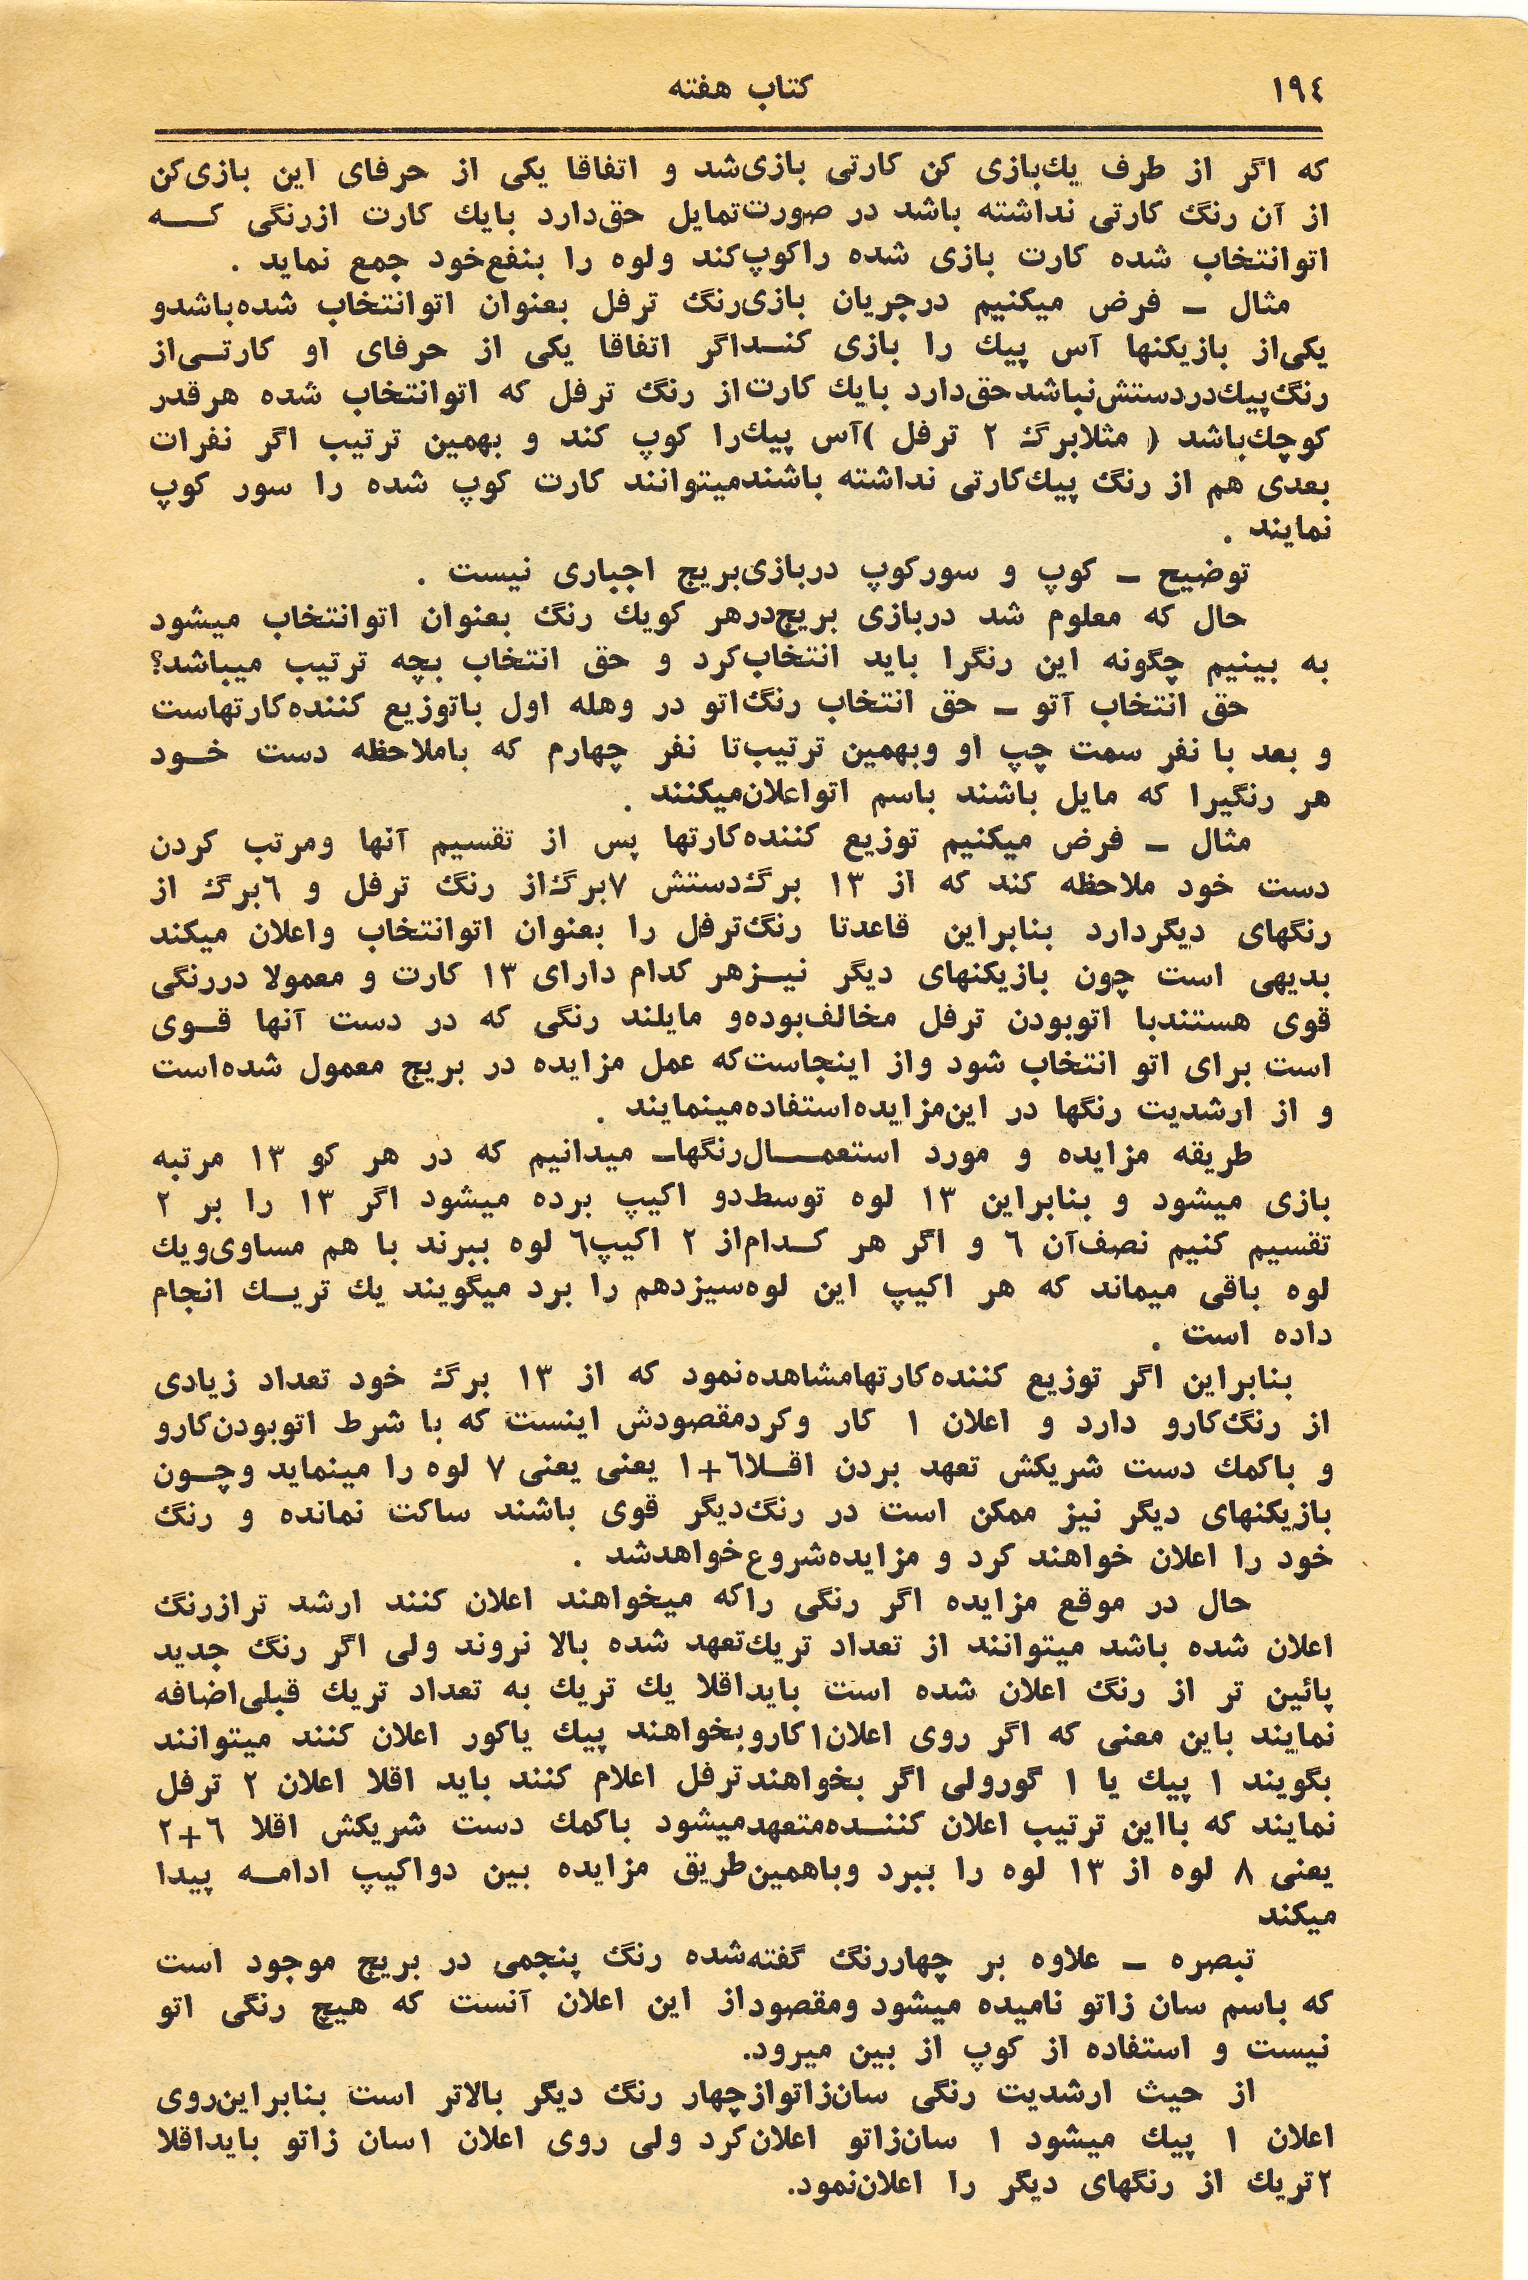 ۱۹٤
کتاب هفته
که اگر از طرف یك‌بازی کن کارتی بازی‌شد و اتفاقا یکی از حرفای این بازی‌کن
از آن رنگ کارتی نداشته باشد در صورت‌تمایل حق‌دارد بایك کارت ازرنگی کـــه
اتوانتخاب شده کارت بازی شده راکوپ‌کند ولوه را بنفع‌خود جمع نماید .
مثال ــ فرض میکنیم درجریان بازی‌رنگ ترفل بعنوان اتوانتخاب شده‌باشدو
یکی‌از بازیکنها آس پیك را بازی کنــداگر اتفاقا یکی از حرفای او کارتــی‌از
رنگ‌پیك‌دردستش‌نباشدحق‌دارد بایك کارت‌از رنگ ترفل که اتوانتخاب شده هرقدر
کوچك‌باشد ( مثلابرگ ۲ ترفل )آس پیك‌را کوپ کند و بهمین ترتیب اگر نفرات
بعدی هم از رنگ پیك‌کارتی نداشته باشندمیتوانند کارت کوپ شده را سور کوپ
نمایند .
توضیح ــ کوپ و سورکوپ دربازی‌بریج اجباری نیست .
حال که معلوم شد دربازی بریج‌درهر کویك رنگ بعنوان اتوانتخاب میشود
به بینیم چگونه این رنگرا باید انتخاب‌کرد و حق انتخاب بچه ترتیب میباشد؟
حق انتخاب آتو ــ حق انتخاب رنگ‌اتو در وهله اول باتوزیع کننده‌کارتهاست
و بعد با نفر سمت چپ او وبهمین ترتیب‌تا نفر چهارم که باملاحظه دست خــود
هر رنگیرا که مایل باشند باسم اتواعلان‌میکنند .
مثال ــ فرض میکنیم توزیع کننده‌کارتها پس از تقسیم آنها ومرتب کردن
دست خود ملاحظه کند که از ۱۳ برگ‌دستش ۷برگ‌از رنگ ترفل و ٦برگ از
رنگهای دیگردارد بنابراین قاعدتا رنگ‌ترفل را بعنوان اتوانتخاب واعلان میکند
بدیهی است چون بازیکنهای دیگر نیــزهر کدام دارای ۱۳ کارت و معمولا دررنگی
قوی هستندبا اتوبودن ترفل مخالف‌بوده‌و مایلند رنگی که در دست آنها قــوی
است برای اتو انتخاب شود واز اینجاست‌که عمل مزایده در بریج معمول شده‌است
و از ارشدیت رنگها در این‌مزایده‌استفاده‌مینمایند .
طریقه مزایده و مورد استعمــــال‌رنگها‌ــ میدانیم که در هر کو ۱۳ مرتبه
بازی میشود و بنابراین ۱۳ لوه توسط‌دو اکیپ برده میشود اگر ۱۳ را بر ۲
تقسیم کنیم نصف‌آن ٦ و اگر هر کــدام‌از ۲ اکیپ٦ لوه ببرند با هم مساوی‌ویك
لوه باقی میماند که هر اکیپ این لوه‌سیزدهم را برد میگویند یك تریــك انجام
داده است .
بنابراین اگر توزیع کننده‌کارتهامشاهده‌نمود که از ۱۳ برگ خود تعداد زیادی
از رنگ‌کارو دارد و اعلان ۱ کار وکردمقصودش اینست که با شرط اتوبودن‌کارو
و باکمك دست شریکش تعهد بردن اقــلا٦+۱ یعنی یعنی ۷ لوه را مینماید وچــون
بازیکنهای دیگر نیز ممکن است در رنگ‌دیگر قوی باشند ساکت نمانده و رنگ
خود را اعلان خواهند کرد و مزایده‌شروع‌خواهدشد .
حال در موقع مزایده اگر رنگی راکه میخواهند اعلان کنند ارشد ترازرنگ
اعلان شده باشد میتوانند از تعداد تریك‌تعهد شده بالا نروند ولی اگر رنگ جدید
پائین تر از رنگ اعلان شده است بایداقلا یك تریك به تعداد تریك قبلی‌اضافه
نمایند باین معنی که اگر روی اعلان۱کاروبخواهند پیك یاکور اعلان کنند میتوانند
بگویند ۱ پیك یا ۱ گورولی اگر بخواهندترفل اعلام کنند باید اقلا اعلان ۲ ترفل
نمایند که بااین ترتیب اعلان کننــده‌متعهدمیشود باکمك دست شریکش اقلا ٦+۲
یعنی ۸ لوه از ۱۳ لوه را ببرد وباهمین‌طریق مزایده بین دواکیپ ادامــه پیدا
میکند
تبصره ــ علاوه بر چهاررنگ گفته‌شده رنگ پنجمی در بریج موجود است
که باسم سان زاتو نامیده میشود ومقصوداز این اعلان آنست که هیچ رنگی اتو
نیست و استفاده از کوپ از بین میرود.
از حیث ارشدیت رنگی سان‌زاتوازچهار رنگ دیگر بالاتر است بنابراین‌روی
اعلان ۱ پیك میشود ۱ سان‌زاتو اعلان‌کرد ولی روی اعلان ۱سان زاتو بایداقلا
۲تریك از رنگهای دیگر را اعلان‌نمود.